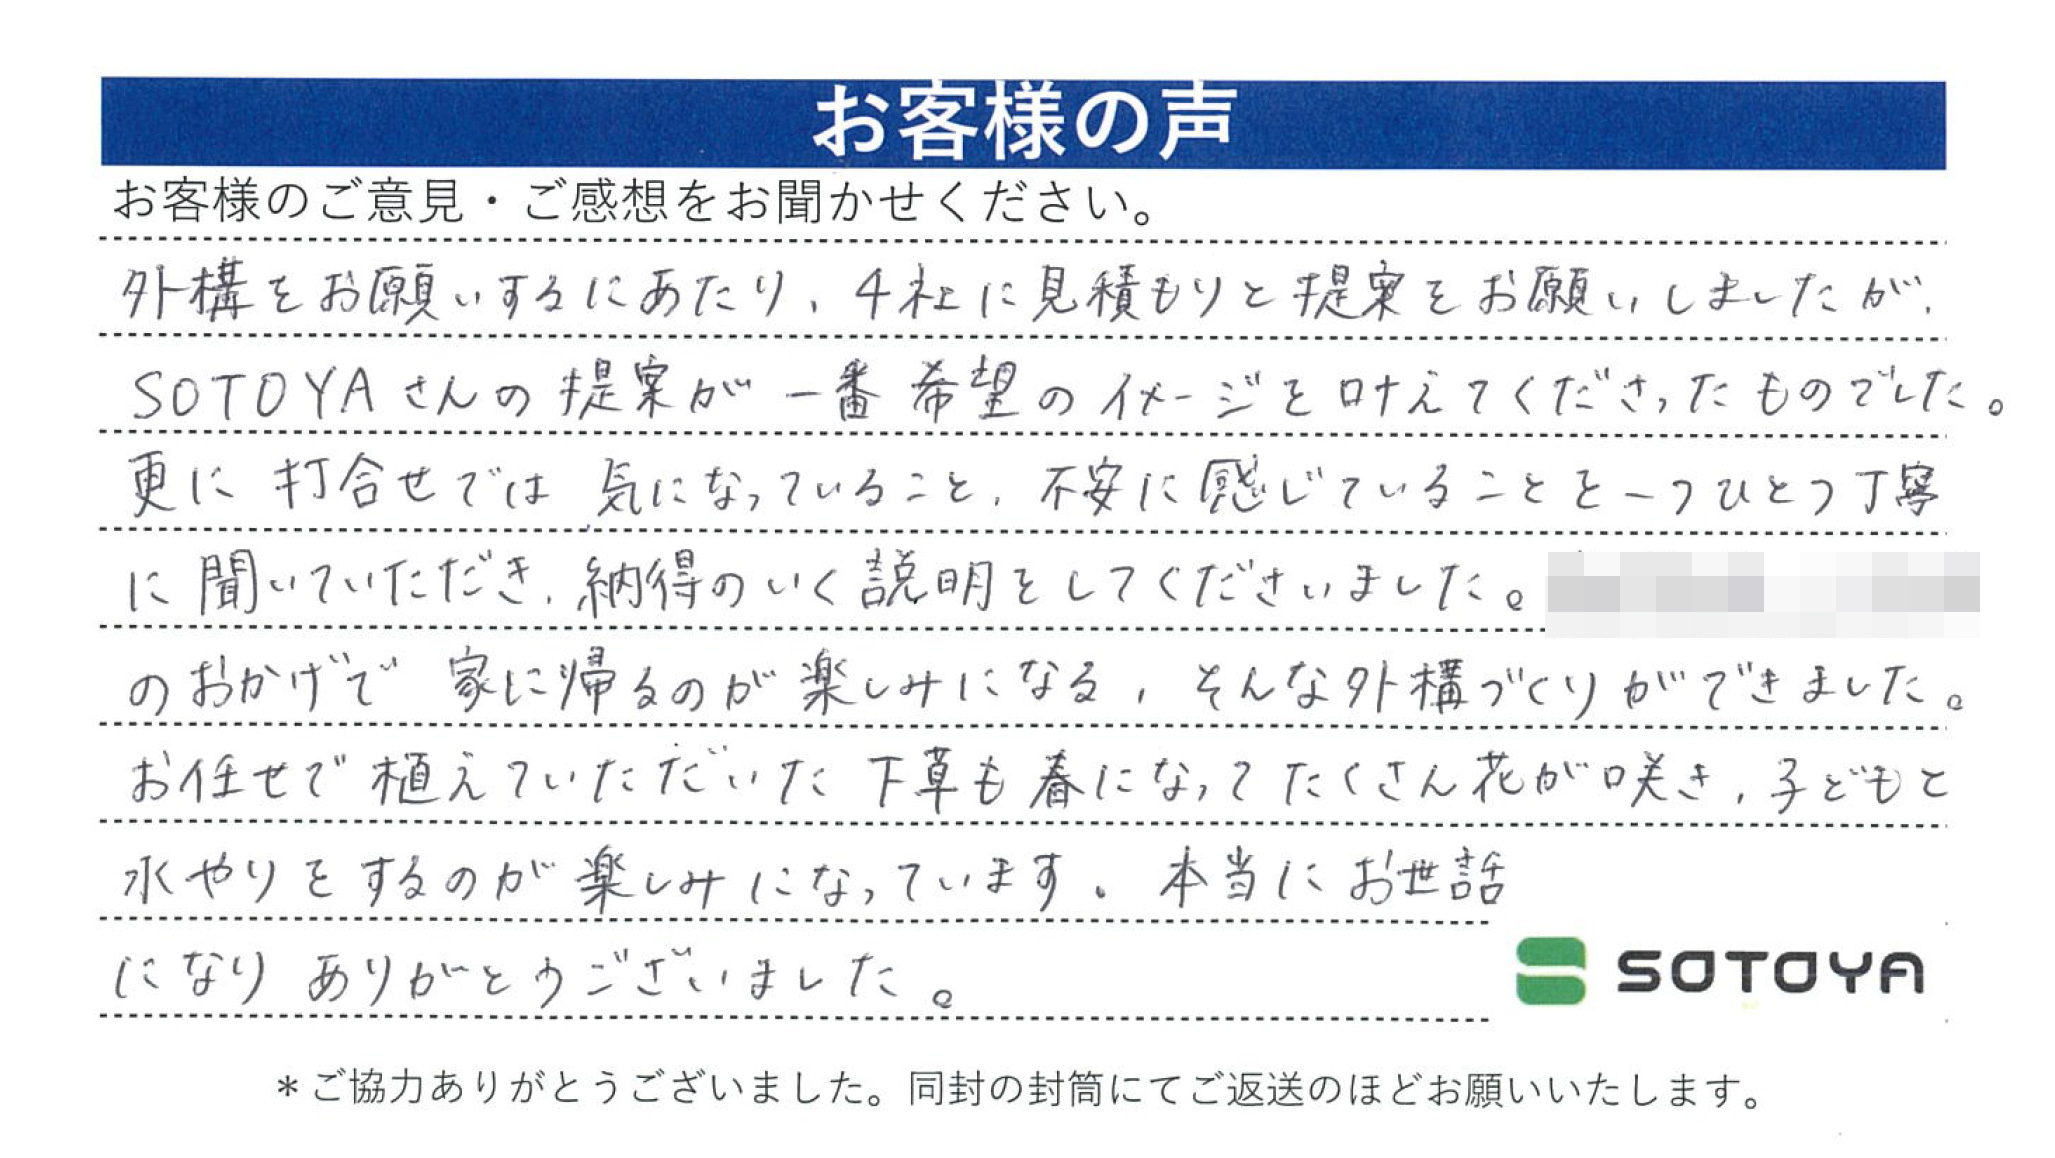 お客様の声
お客様のご意見・ご感想をお聞かせください。
外構をお願いするにあたり、4社に見積もりと提案をお願いしましたが、
SOTOYAさんの提案が一番希望のイメージを叶えてくださったものでした。
更に打合せでは気になっていること、不安に感じていることを一つひとつ丁寧
に聞いていただき、納得のいく説明をしてくださいました。
のおかげで家に帰るのが楽しみになる、そんな外構づくりができました。
お任せで植えていただいた下草も春になってたくさん花が咲き、子どもと
水やりをするのが楽しみになっています。本当にお世話
になりありがとうございました。
SOTOYA
＊ご協力ありがとうございました。同封の封筒にてご返送のほどお願いいたします。